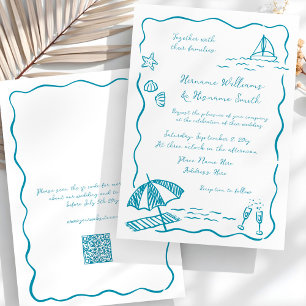 Together with
their families
Hername Wellliams
& Hisname Smith
Request the pleasure of your company
at the celebration of their wedding
Saturday, September 2, 20
At three o'clock in the afternoon
Place Name Here
Address Here
Reception to follow
Please scan the qr code for more
about our wedding and to
before July 5th, 20